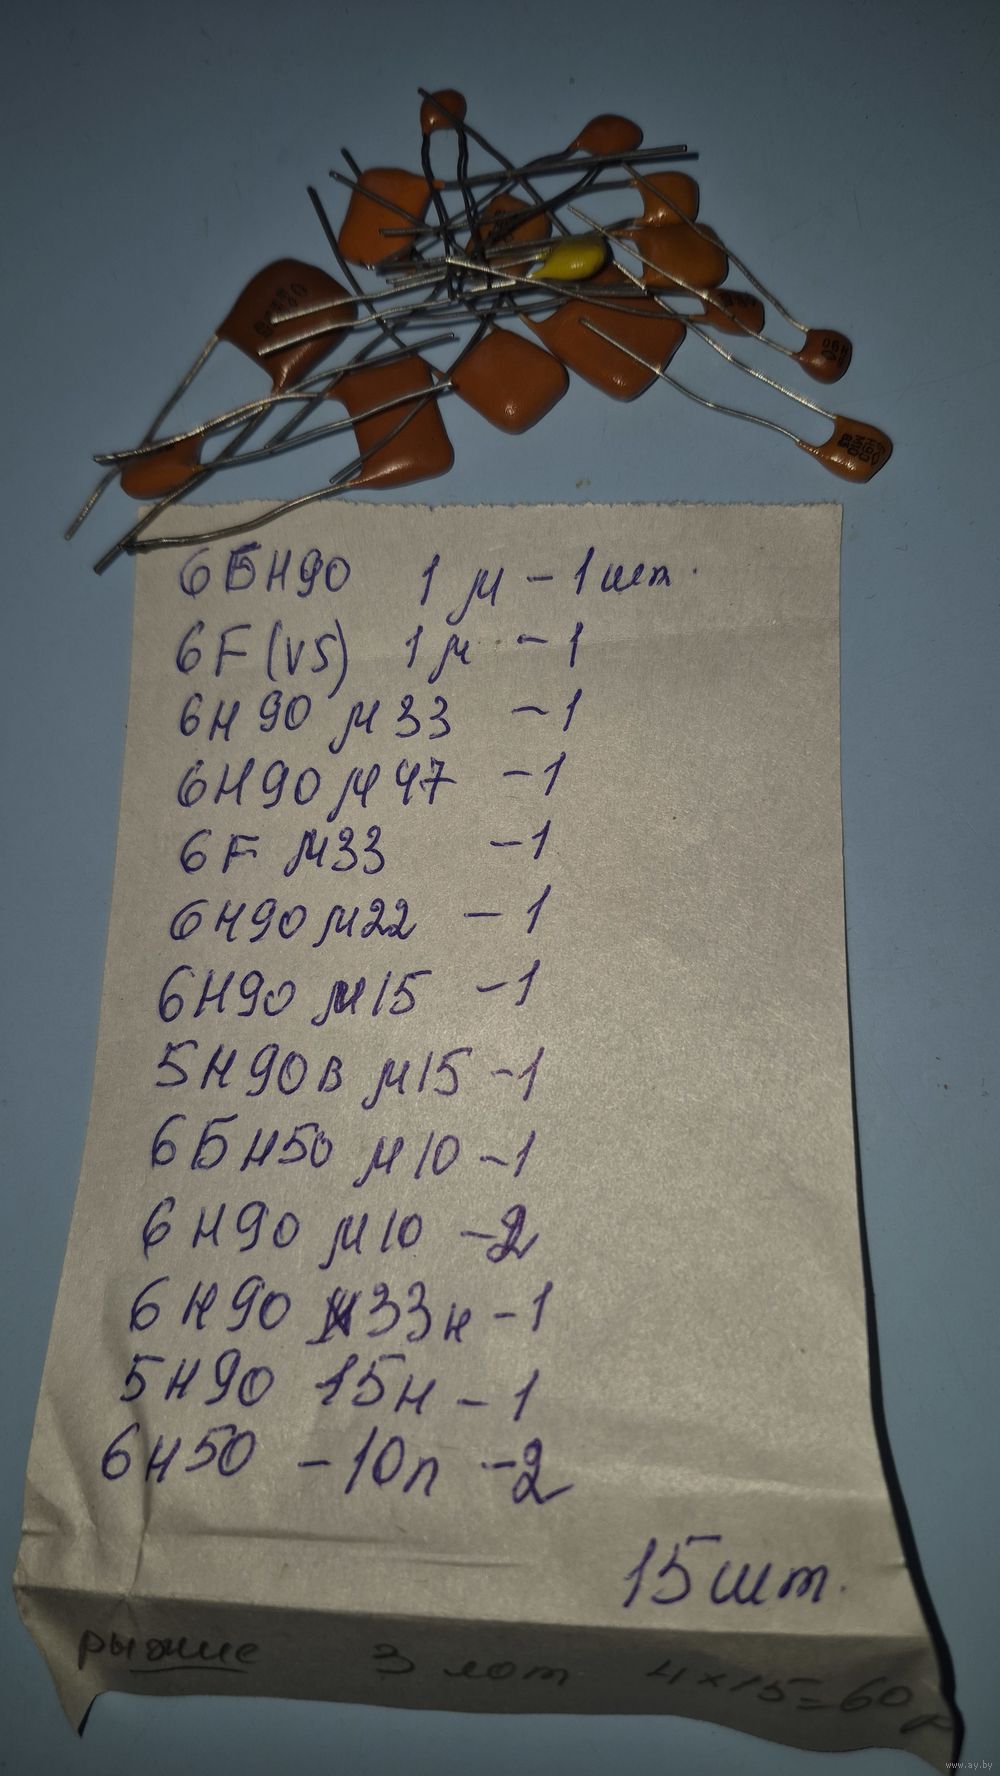 Н90
6БН90 1 μ - 1 шт.
6F (V5) 1 μ - 1
6Н90 μ33 - 1
6Н90 μ47 - 1
6F μ33 - 1
6Н90 μ22 - 1
6Н90 μ15 - 1
5Н90в μ15 - 1
6БН50 μ10 - 1
6Н90 μ10 - 2
6Н90 33н - 1
5Н90 15н - 1
6Н50 - 10п - 2
15 шт.
рыжие 3 лот 4 x 15 = 60 р
www.ay.by